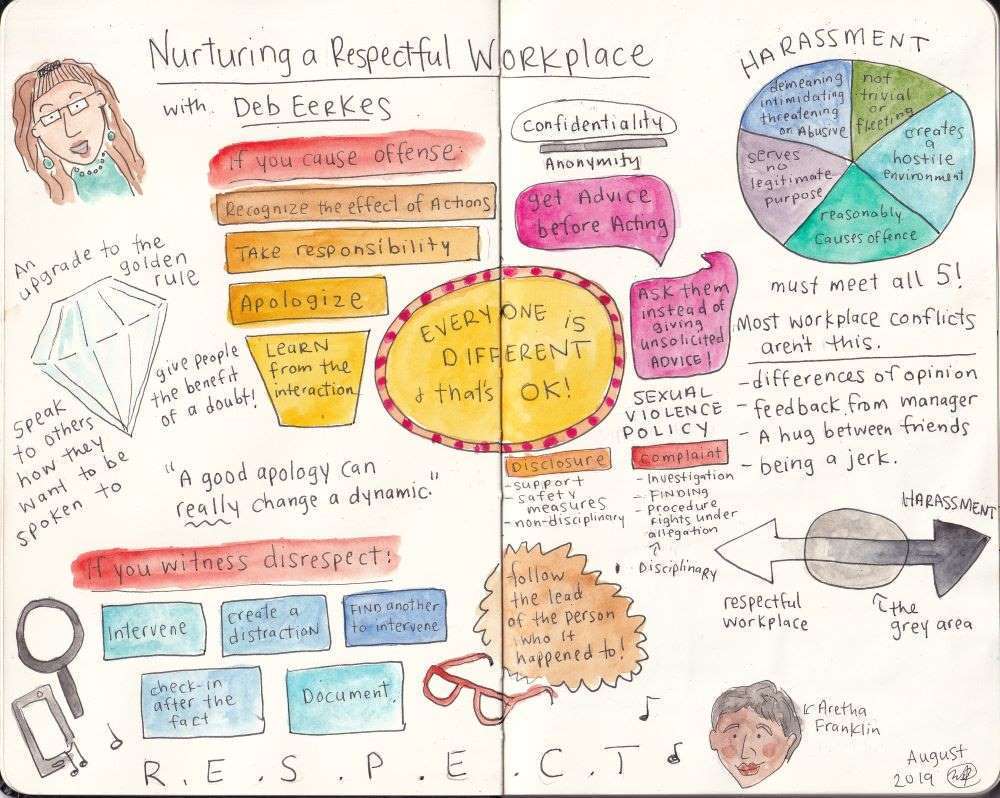 Nurturing a Respectful Workplace
with Deb Eerkes
If you cause offense:
Recognize the effect of Actions
Take responsibility
Apologize
Learn
from the
interaction
An
upgrade to the
golden
rule
give people
the benefit
of a doubt!
Speak
to others
how they
want to be
spoken to
"A good apology can
really change a dynamic."
EVERYONE IS
DIFFERENT
& that's OK!
If you witness disrespect:
Intervene
create a
distraction
FIND another
to intervene
check-in
after the
fact
Document.
Confidentiality
Anonymity
get Advice
before Acting
Ask them
instead of
giving
unsolicited
ADVICE!
SEXUAL
VIOLENCE
POLICY
Disclosure
- support
- safety
measures
- non-disciplinary
Complaint
- Investigation
- FINDING
- Procedure
rights under
allegation
Disciplinary
follow
the lead
of the person
who it
happened to!
HARASSMENT
demeaning
intimidating
threatening
or Abusive
not
trivial
or
fleeting
creates
a
hostile
environment
reasonably
causes offence
serves
no
legitimate
purpose
must meet all 5!
Most workplace conflicts
aren't this.
- differences of opinion
- feedback from manager
- A hug between friends
- being a jerk.
HARASSMENT
respectful
workplace
the
grey area
Aretha
Franklin
R.E.S.P.E.C.T
August
2019